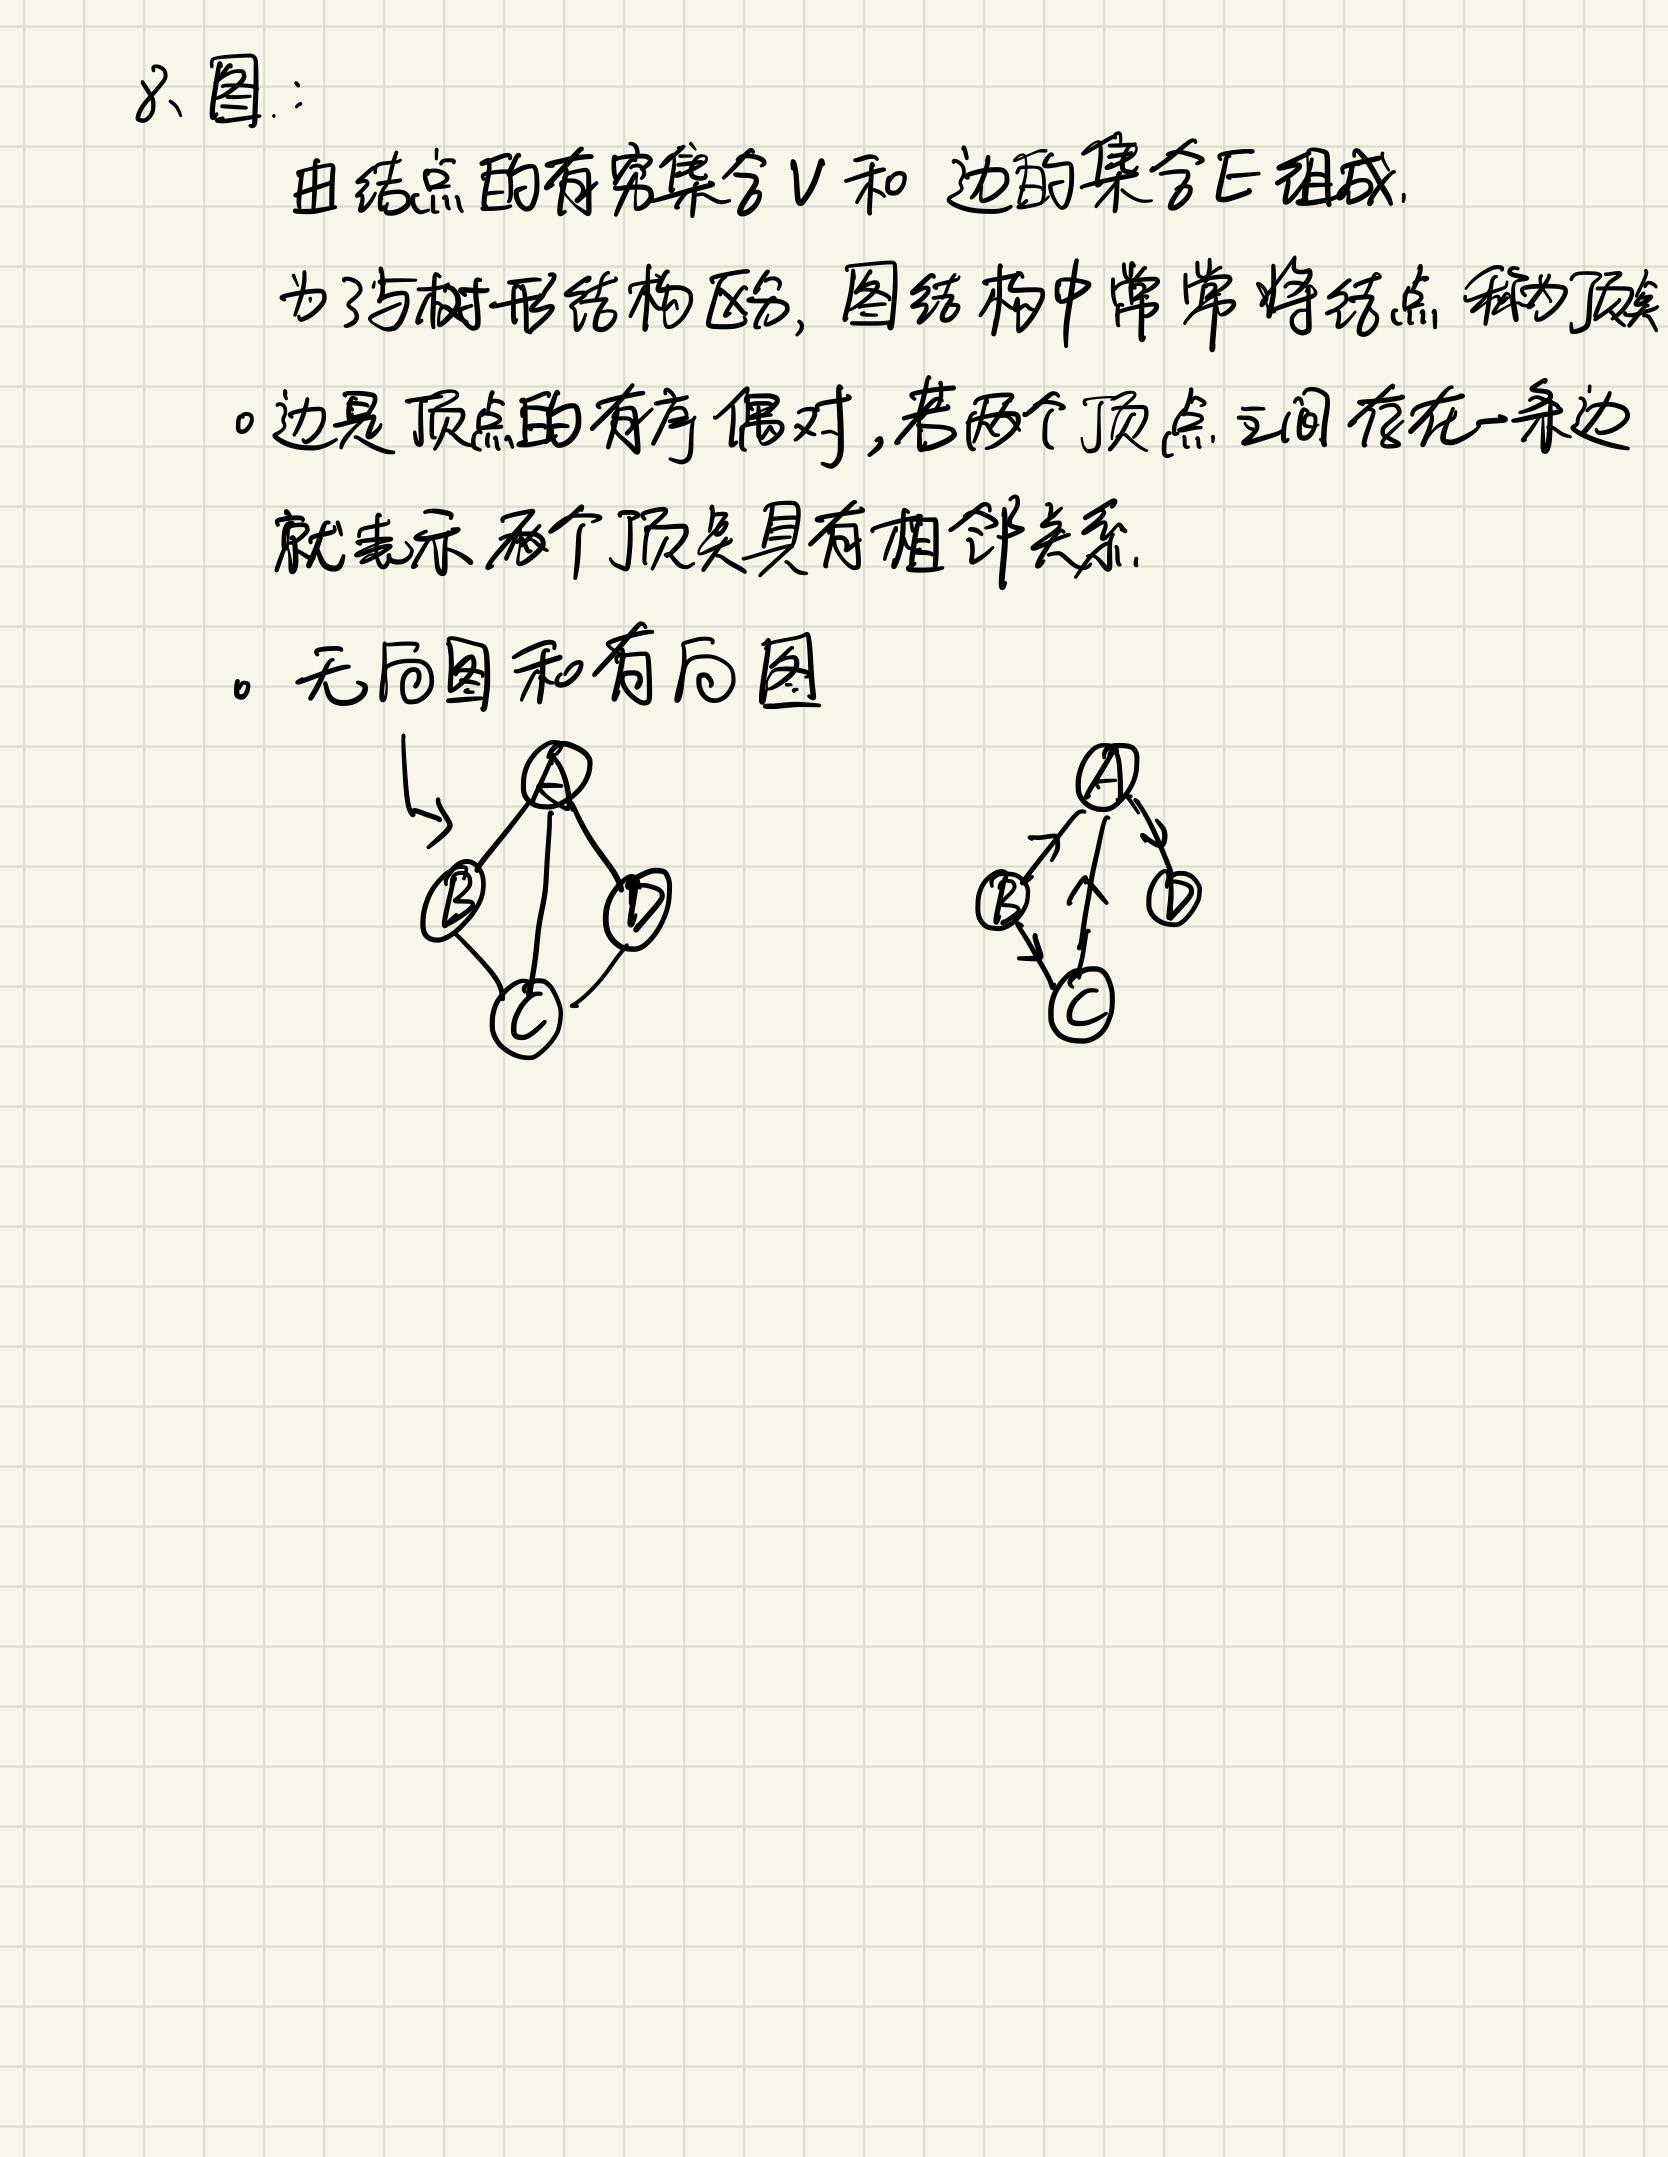 8、图:
由结点的有穷集合V和 边的集合E组成.
为了与树形结构区分, 图结构中常常将结点 称为顶点
。边是顶点的有序偶对,若两个顶点之间存在一条边
就表示两个顶点具有相邻关系.
。无向图和有向图
A A
B D B D
C C